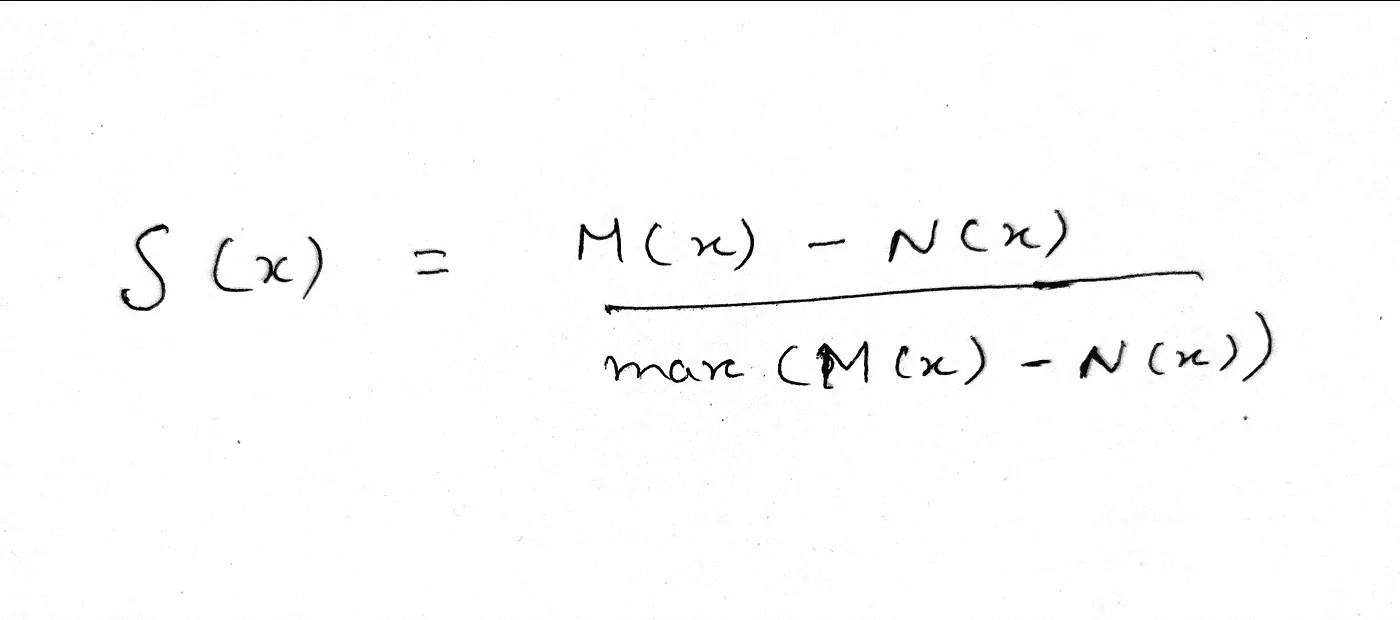 S(x) = M(x) - N(x)
max (M(x) - N(x))